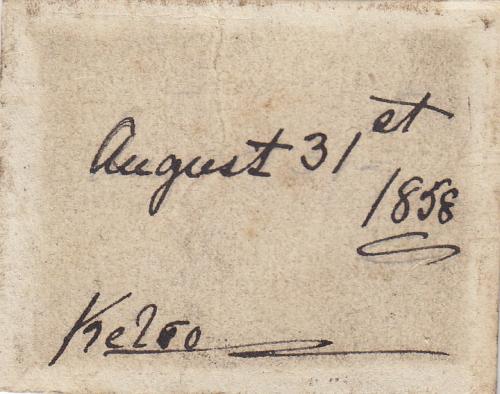 August 31st
1858
Kelso